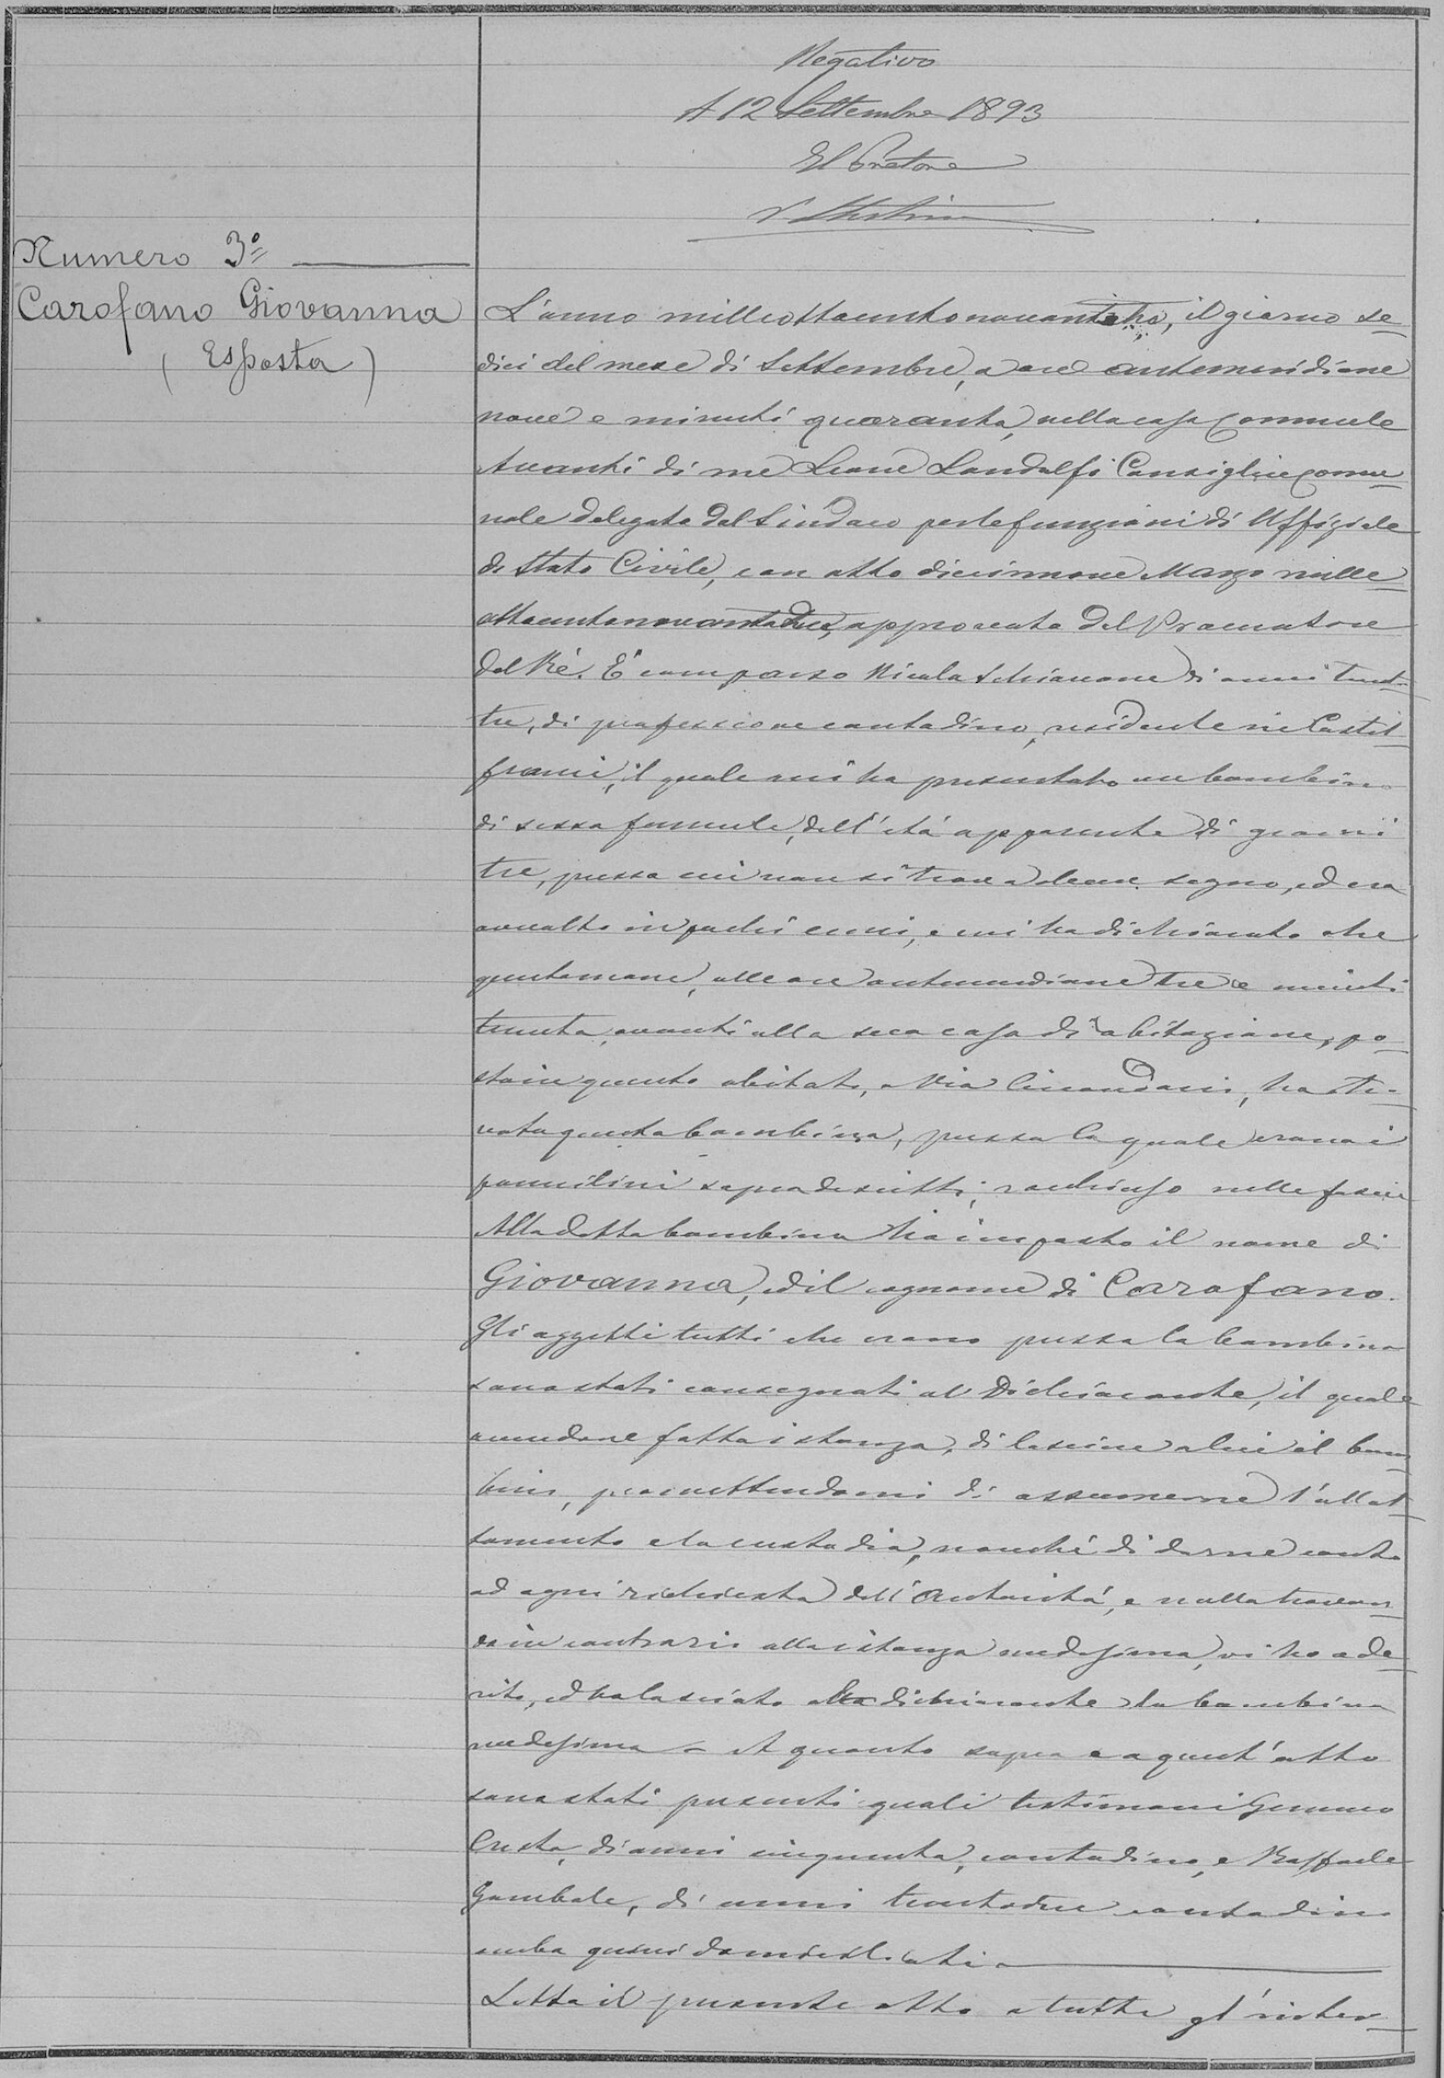 Negativo
A 12 Settembre 1893
Il Pretore
Numero 3º
Carofano Giovanna
(Esposta)
L'anno milleottocentonovantatre, il giorno se=
dici del mese di Settembre, a ore antemeridiane
nove e minuti quaranta, nella casa Comunale
Avanti di me Leone Landolfi Consigliere Comu=
nale delegato dal Sindaco per le funzioni di Uffiziale
di Stato Civile, con atto diciannove Marzo mille=
ottocentonovantadue, approvato dal Procuratore
del Rè. È comparso Nicola Schiavone di anni trenta=
tre, di professione contadino, residente in Castel=
franci, il quale mi ha presentato un bambino
di sesso femmile, dell'età apparente di giorni
tre, presso cui non si trova alcun segno, ed era
avvolto in pochi cenci, e mi ha dichiarato che
questa mane, alle ore antemeridiane tre e minuti
trenta, avanti alla sua casa di abitazione, po=
sta in questo abitato, a Via, ha tro=
vata questa bambina, presso la quale erano i
pannilini sopradescritti, racchiuso nelle fasce
Alla detta bambina ho imposto il nome di
Giovanna, ed il cognome di Carofano.
Gli oggetti tutti che erano presso la bambina
sono stati consegnati al Dichiarante, il quale
avendone fatta istanza, di lasciare a lui il bam=
bino, promettendomi di assumerne l'allat=
tamento e la custodia, nonché di darne conto
ad ogni richiesta dell'Autorità, e nulla trovan=
do in contrario alla istanza medesima, vi ho ade=
rito, ed ho lasciato al dichiarante la bambina
medesima - A quanto sopra e a quest'atto
sono stati presenti quali testimoni Gennaro
Cresta, di anni cinquanta, contadino, e Raffaele
Gambale, di anni trentadue contadino
ambo quivi domiciliati
Letto il presente atto a tutti gl'inter=